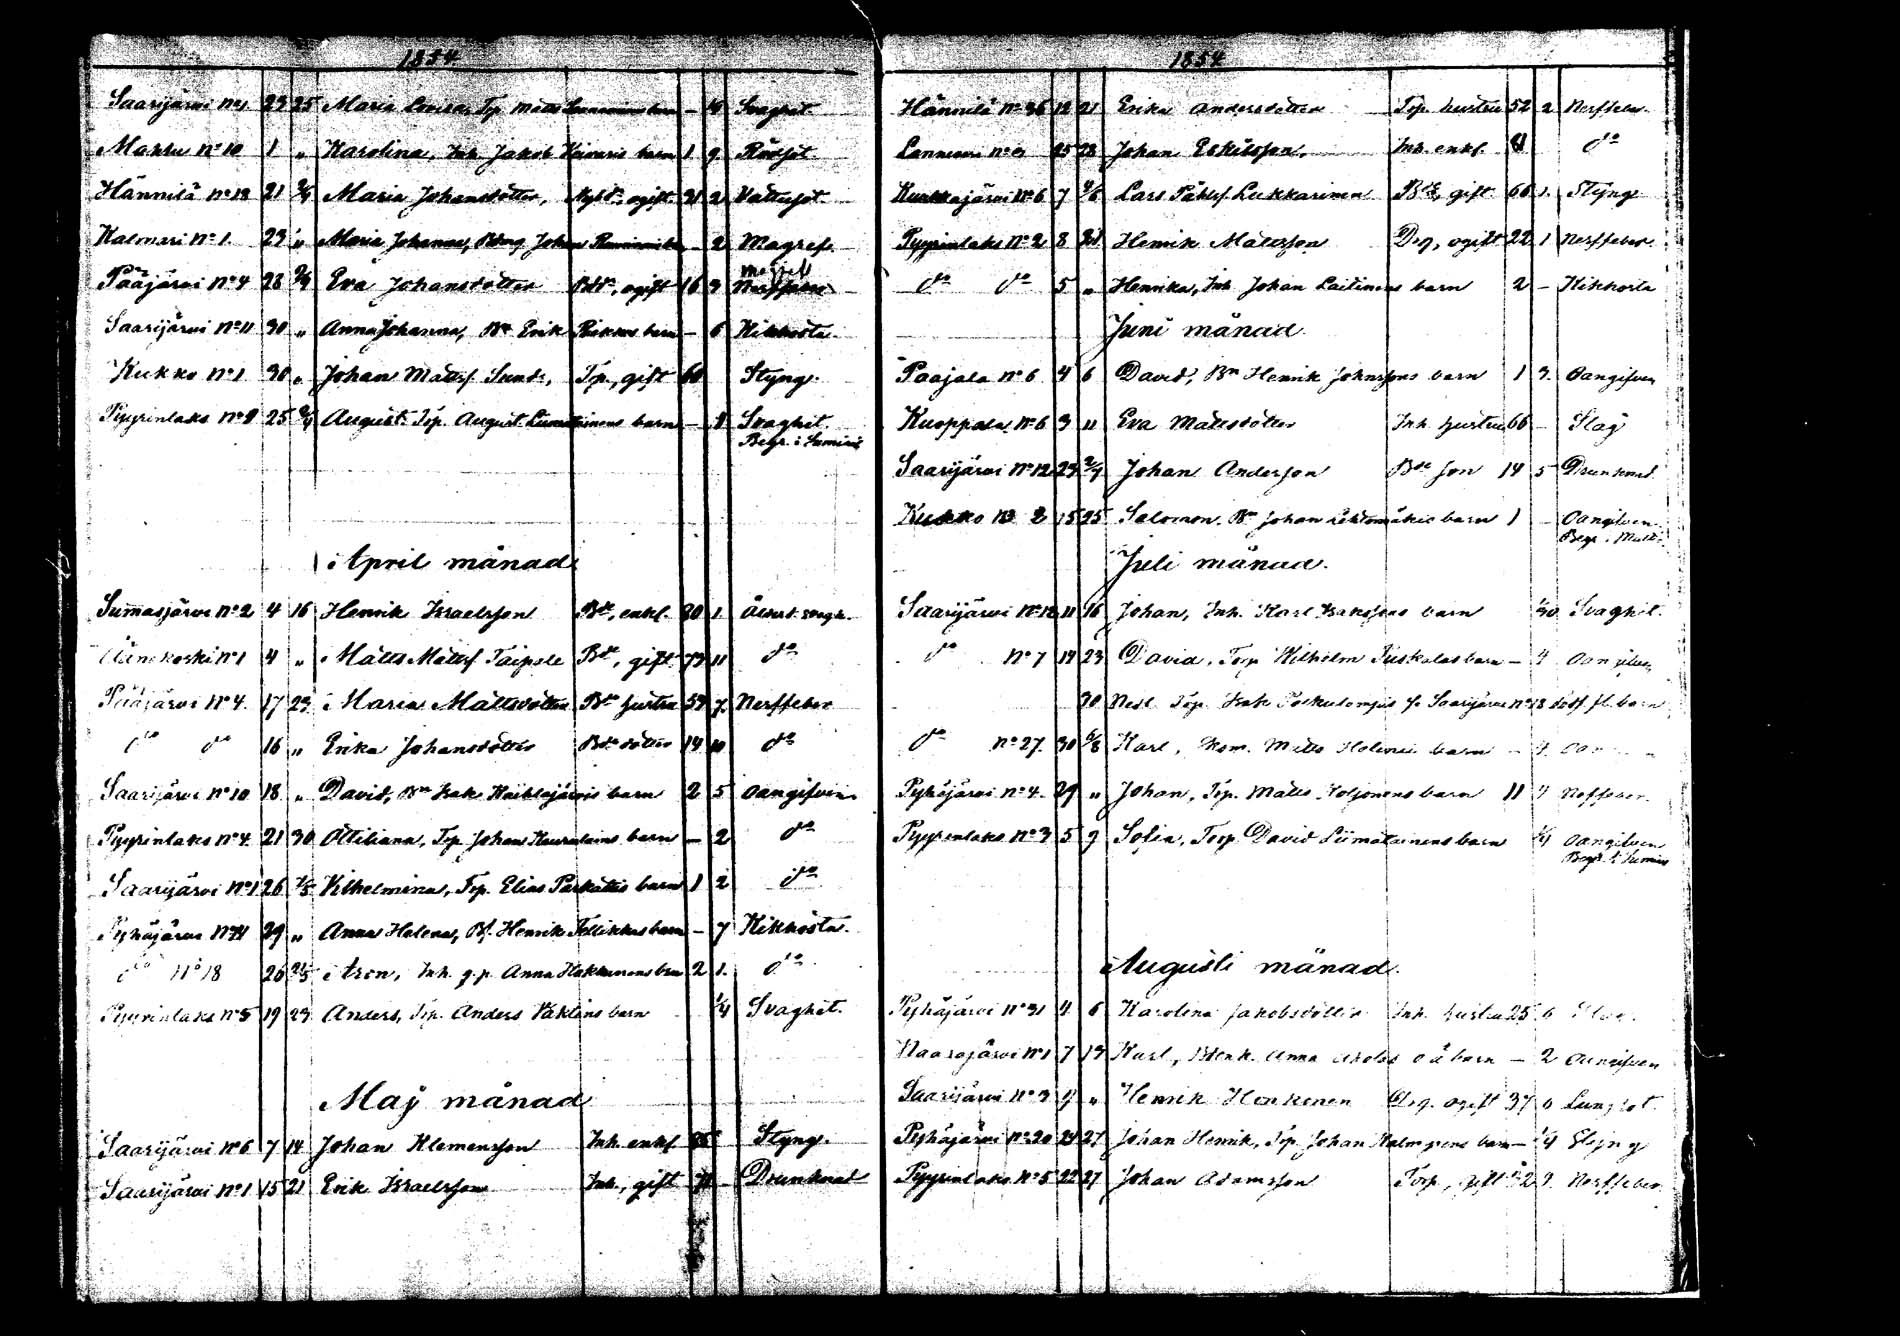 1854
Saarijärvi No 1 23 25 Maria Lovisa, Tp Matts barn – Svaghet
Mahlu No 10 1 " Karolina, Inh. Jakob barn 1 9 Rödsot
Hännilä No 18 21 2/4 Maria Johansdotter, ogift 31 2 Vattusot
Kalmari No 1. 23 " Maria Johanna, Johan – 2 Magref.
Pääjärvi No 4 28 2/4 Eva Johansdotter Bdr, ogift 16 3
Saarijärvi No 11 30 " Anna Johanna, Bd Erik Riekkos barn – 6 Kikhosta
Kukko No 1 30 " Johan Mattsf. Sund, Tp., gift 60 Styng.
Pyyrinlaks No 9 25 August Tp. August Liimatainens barn – Svaghet.
Begr. i Sumiais
April månad
Summasjärvi No 2 4 16 Henrik Israelsson Bde, enkl. 80 1. Ålderd. svagh.
Äänekoski No 1 4 " Matts Mattsf Taipale Bde, gift 73 11 do
Pääjärvi No 4. 17 23 Maria Mattsdotter Bde hustru 59 7. Nerffeber
do do 16 " Erika Johansdotter Bde dotter 14 10 do
Saarijärvi No 10 18 " David, Bn Isak barn 2 5 Oangifven
Pyyrinlaks No 4. 21 30 Ottiliana, Tp. Johan barn – 2 do
Saarijärvi No 1 26 7/5 Vilhelmina, Tp. Elias Parkatis barn 1 2 do
Pyhäjärvi 29 " Anna Helena, Bf. Henrik barn – 7 Kikhosta.
do No 18 26 21/5 Aron, Inh. q.p. Anna Hakkarainens barn 2 1. do
Pyyrinlaks No 5 19 23 Anders, Tp. Anders barn 1/4 Svaghet.
Maj månad
Saarijärvi No 6 7 14 Johan Klemensson Inh. enkl. 85 Styng.
Saarijärvi No 1 15 21 Erik Israelsson Inh., gift 71 – Drunknat
1854
Hännilä No 36 12 21 Erika Andersdotter Tp. hustru 52 2 Nerffeber.
Lannevesi No 3 25 28 Johan Eskilsson, Inh. enkl. 81 do
Kurkkajärvi No 6 7 4/6 Lars Påhlsf. Lukkarinen Bde, gift 66 1. Styng
Pyyrinlaks No 2 8 21 Henrik Mattsson Drg, ogift 22 1 Nerffeber.
do do 5 " Henrika, Inh. Johan Laitinens barn 2 – Kikhosta
Juni månad.
Paajala No 6 4 6 David, Bn Henrik Johnssons barn 1 3. Oangifven
Kuoppala No 6 3 " Eva Mattsdotter Inh. hustru 66 – Slag
Saarijärvi No 12 23 2/7 Johan Andersson Bde son 14 5 Drunknad
Kukko No 2 15 25 Salomon, Bn Johan Lehtomäkis barn 1 – Oangifven.
Begr. i
Juli månad.
Saarijärvi No 12 11 16 Johan, Inh. Karl Isakssons barn 1/30 Svaghet.
do No 7 14 23 David, Torp. Wilhelm barn – 4 Oangifven
30 Tp. Isak fr. Saarijärvi No 13 dödf. fl. barn
do No 27. 30 6/8 Karl, Matts barn – 4.
Pyhäjärvi No 4. 29 " Johan, Tp. Matts Koljonens barn 11 4 Nerffeber.
Pyyrinlaks No 3 5 9 Sofia, Torp. David Liimatainens barn 1/4 Oangifven
Begr. i Sumiais
Augusti månad.
Pyhäjärvi No 31 4 6 Karolina Jakobsdotter Inh. hustru 25 6
Naarajärvi No 1 7 13 Karl, Anna o ä barn – 2 Oangifven
Saarijärvi No 3 9 " Henrik Honkonen Drg. ogift 37 6 Lungsot.
Pyhäjärvi No 20 24 27 Johan Henrik, Tp. Johan Malmgrens barn – 1/4 Styng
Pyyrinlaks No 5 22 27 Johan Adamsson Torp., gift 52 9. Nerffeber.